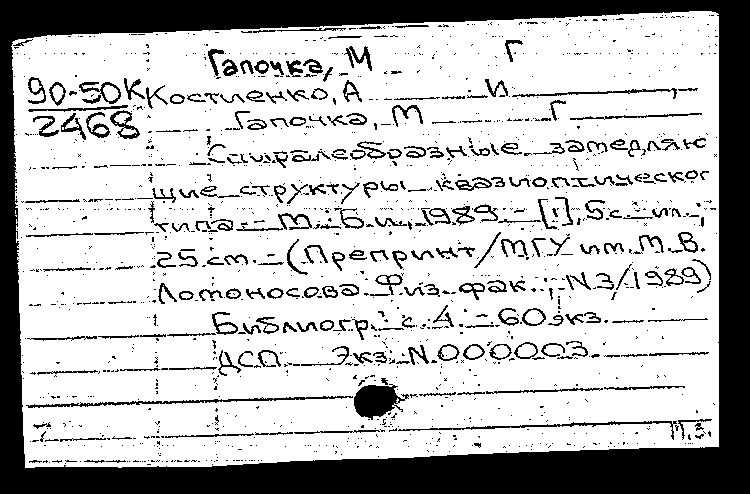 Гапочка, М Г
90-50К Костиенко, А И ,
2468 Гапочка, М Г
Спиралеобразные замедляю
щие структуры квазиоптическог
типа. - М.: Б.и., 1989. - [1], 5 с. ил.;
25 см. - (Препринт/МГУ им. М. В.
Ломоносова. Физ. фак.; N 3/1989)
Библиогр.: с. 4. - 60 экз.
ДСП Экз. N 000003.
м.з.